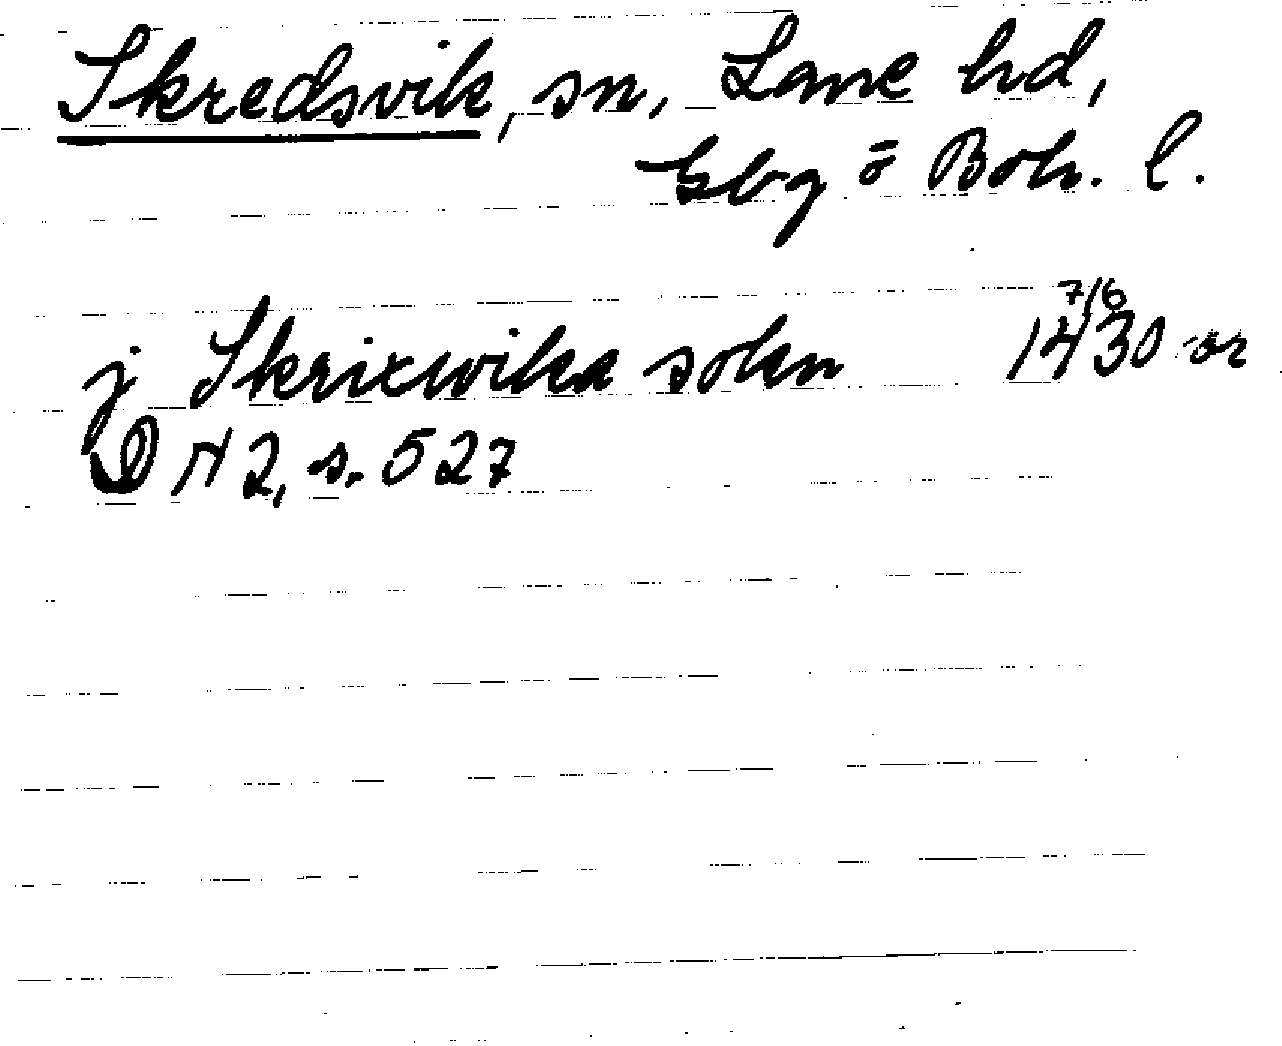 Skredsvik, sn, Lane hd,
Gbg o Boh. l.
j Skrixwika sokn 7/6 1430 or
DN 2, s. 527